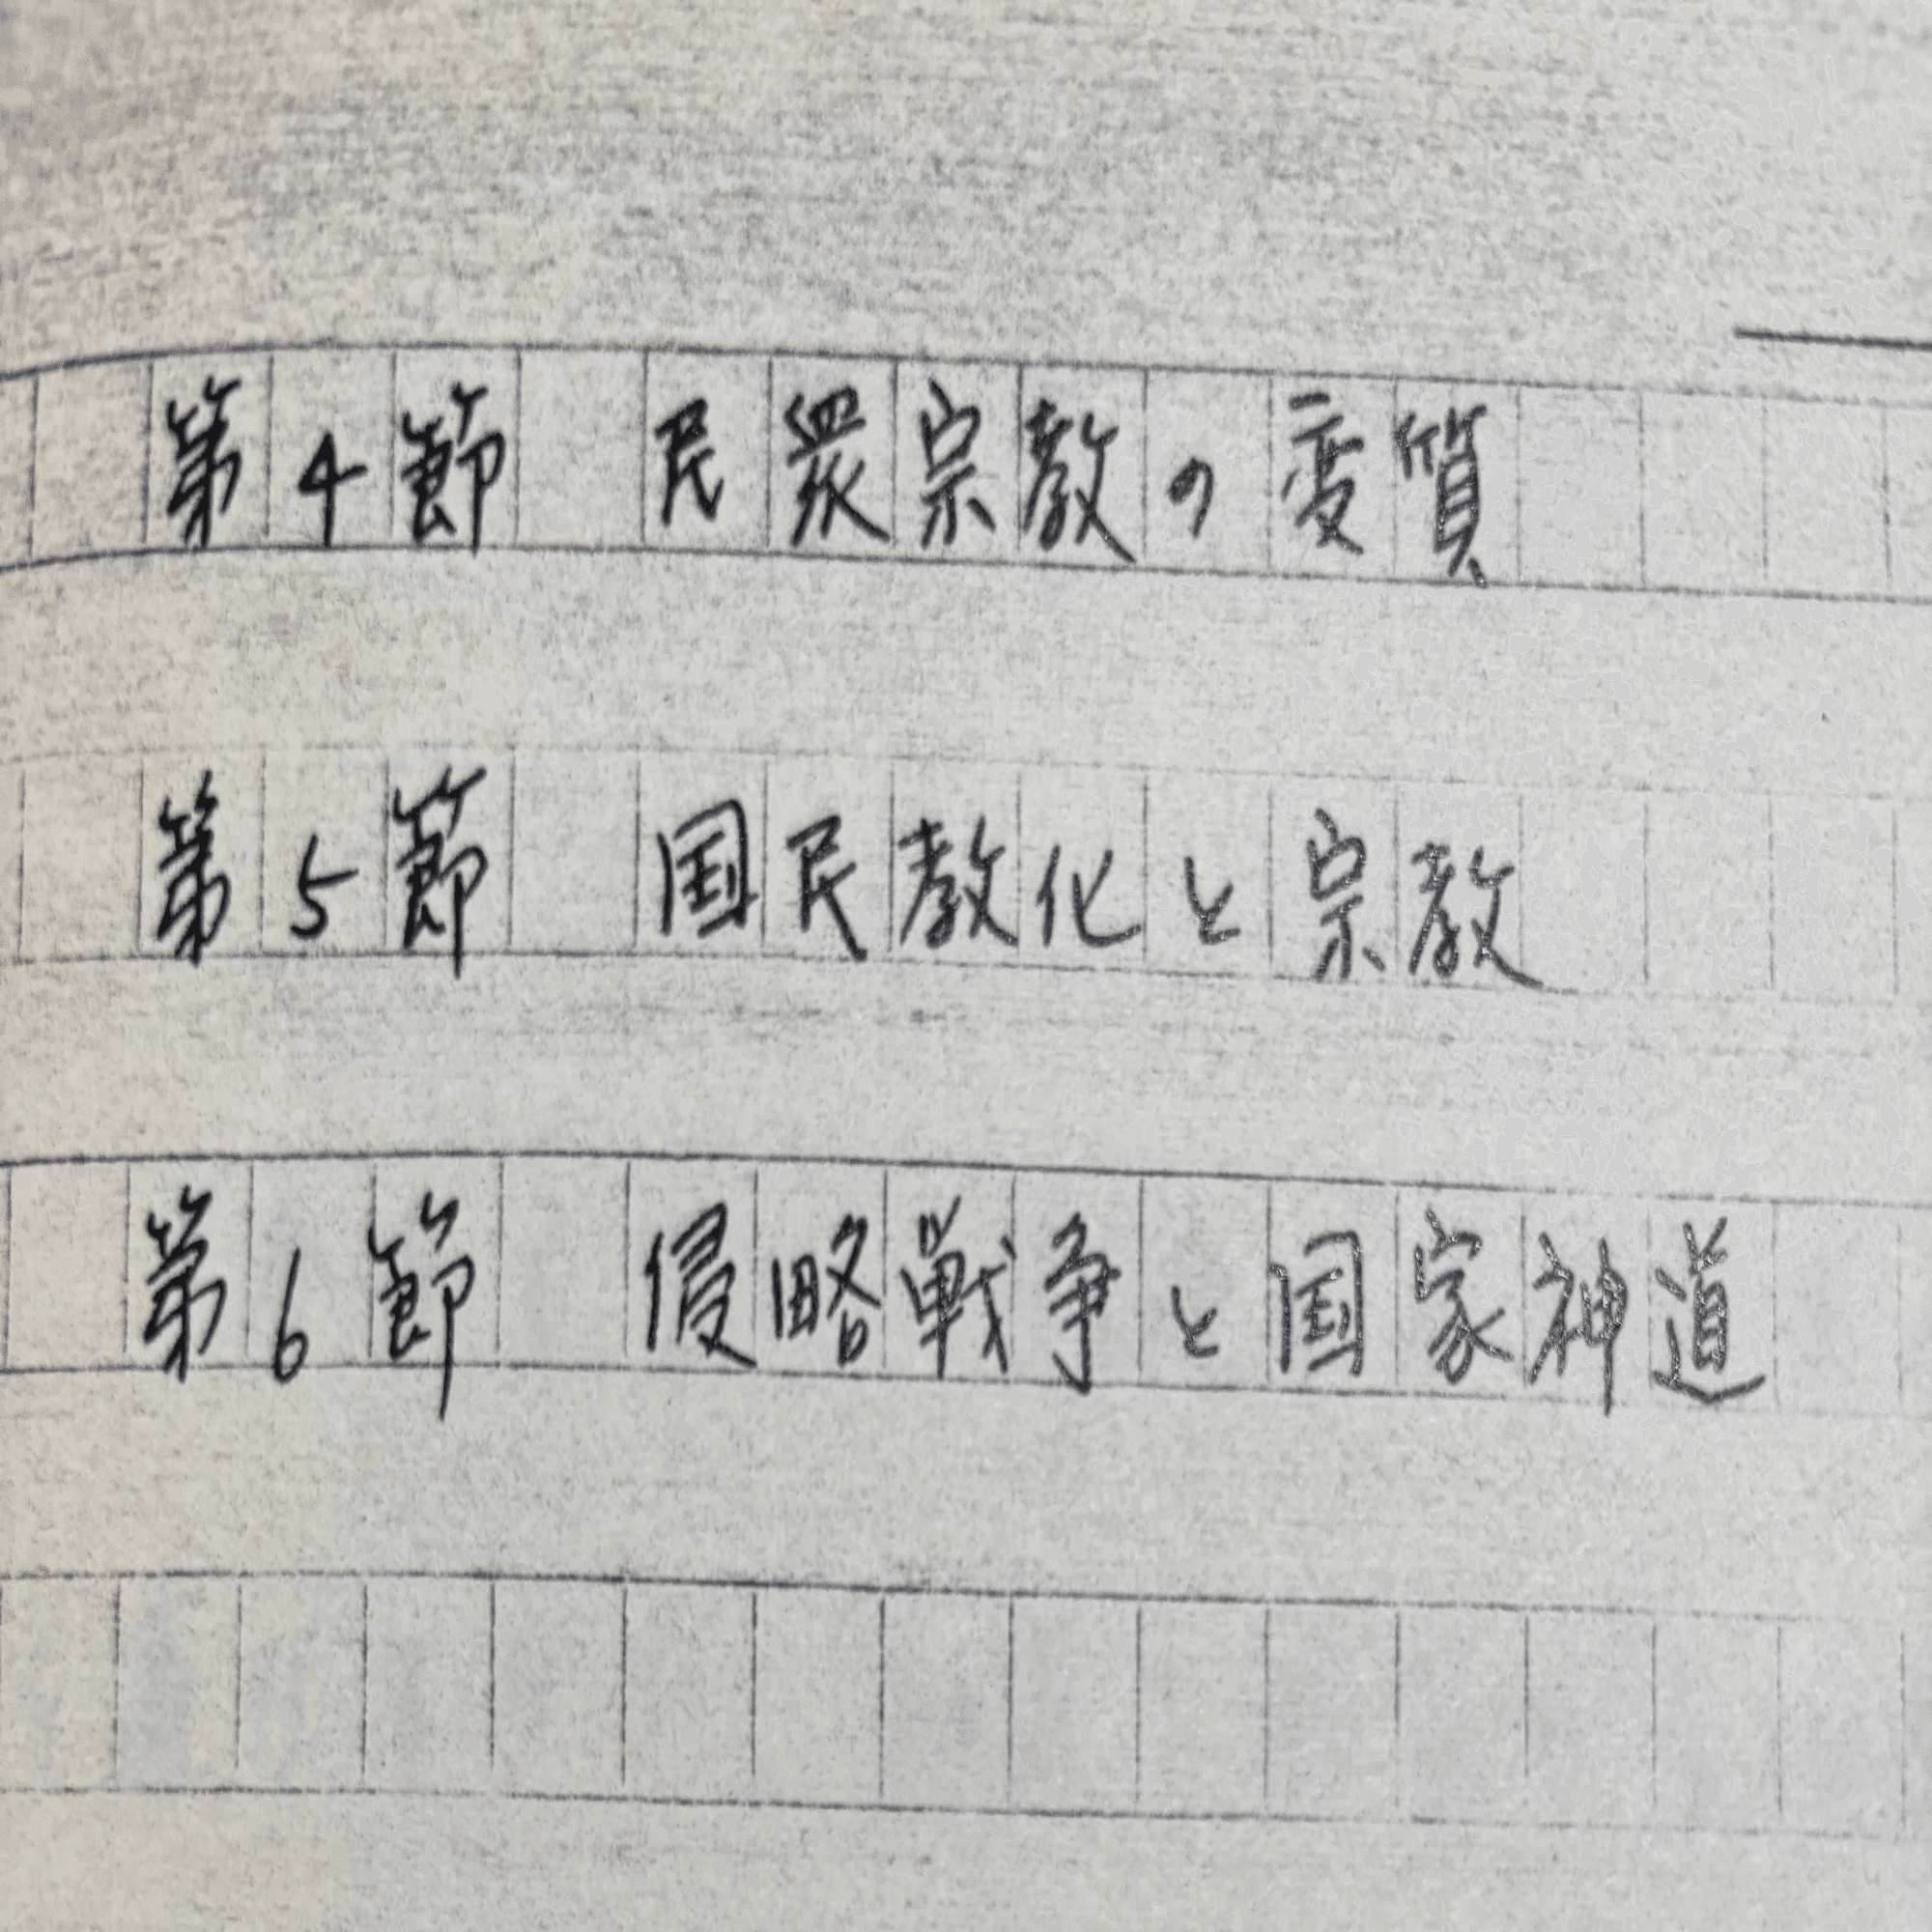 第4節　民衆宗教の変質
第5節　国民教化と宗教
第6節　侵略戦争と国家神道